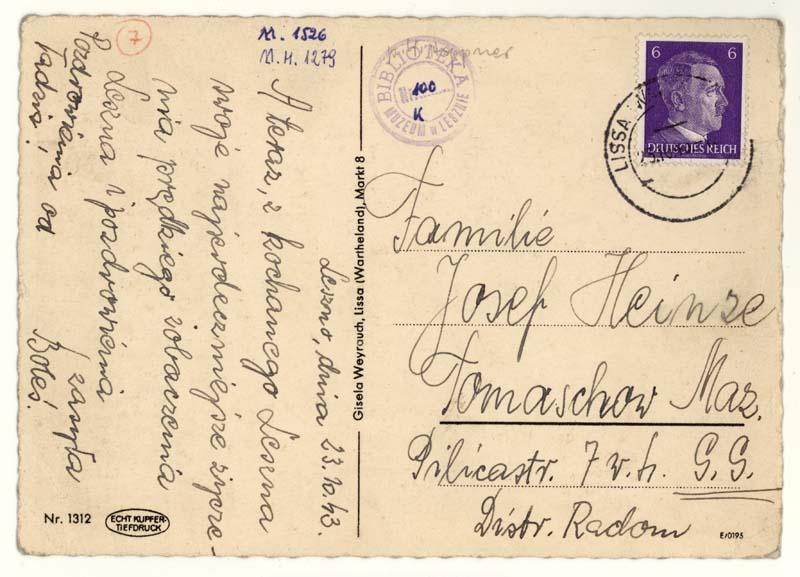 7
M. 1526
M. H. 1279
BIBLIOTEKA
Nr. 100
K
MUZEUM w LESZNIE
6 6
DEUTSCHES REICH
LISSA
Leszno, dnia 23.10.43.
A teraz, z kochanego Leszna
swoje najserdeczniejsze życze-
nia prędkiego zobaczenia
Leszna i pozdrowienia
zasyła
Boleś.
Pozdrowienia od
Tadzia,
Gisela Weyrauch, Lissa (Wartheland), Markt 8
Familie
Josef Heinze
Tomaschow Maz.
Pilicastr. 7 G. G.
Distr. Radom
Nr. 1312
ECHT KUPFER-
TIEFDRUCK
E/0195